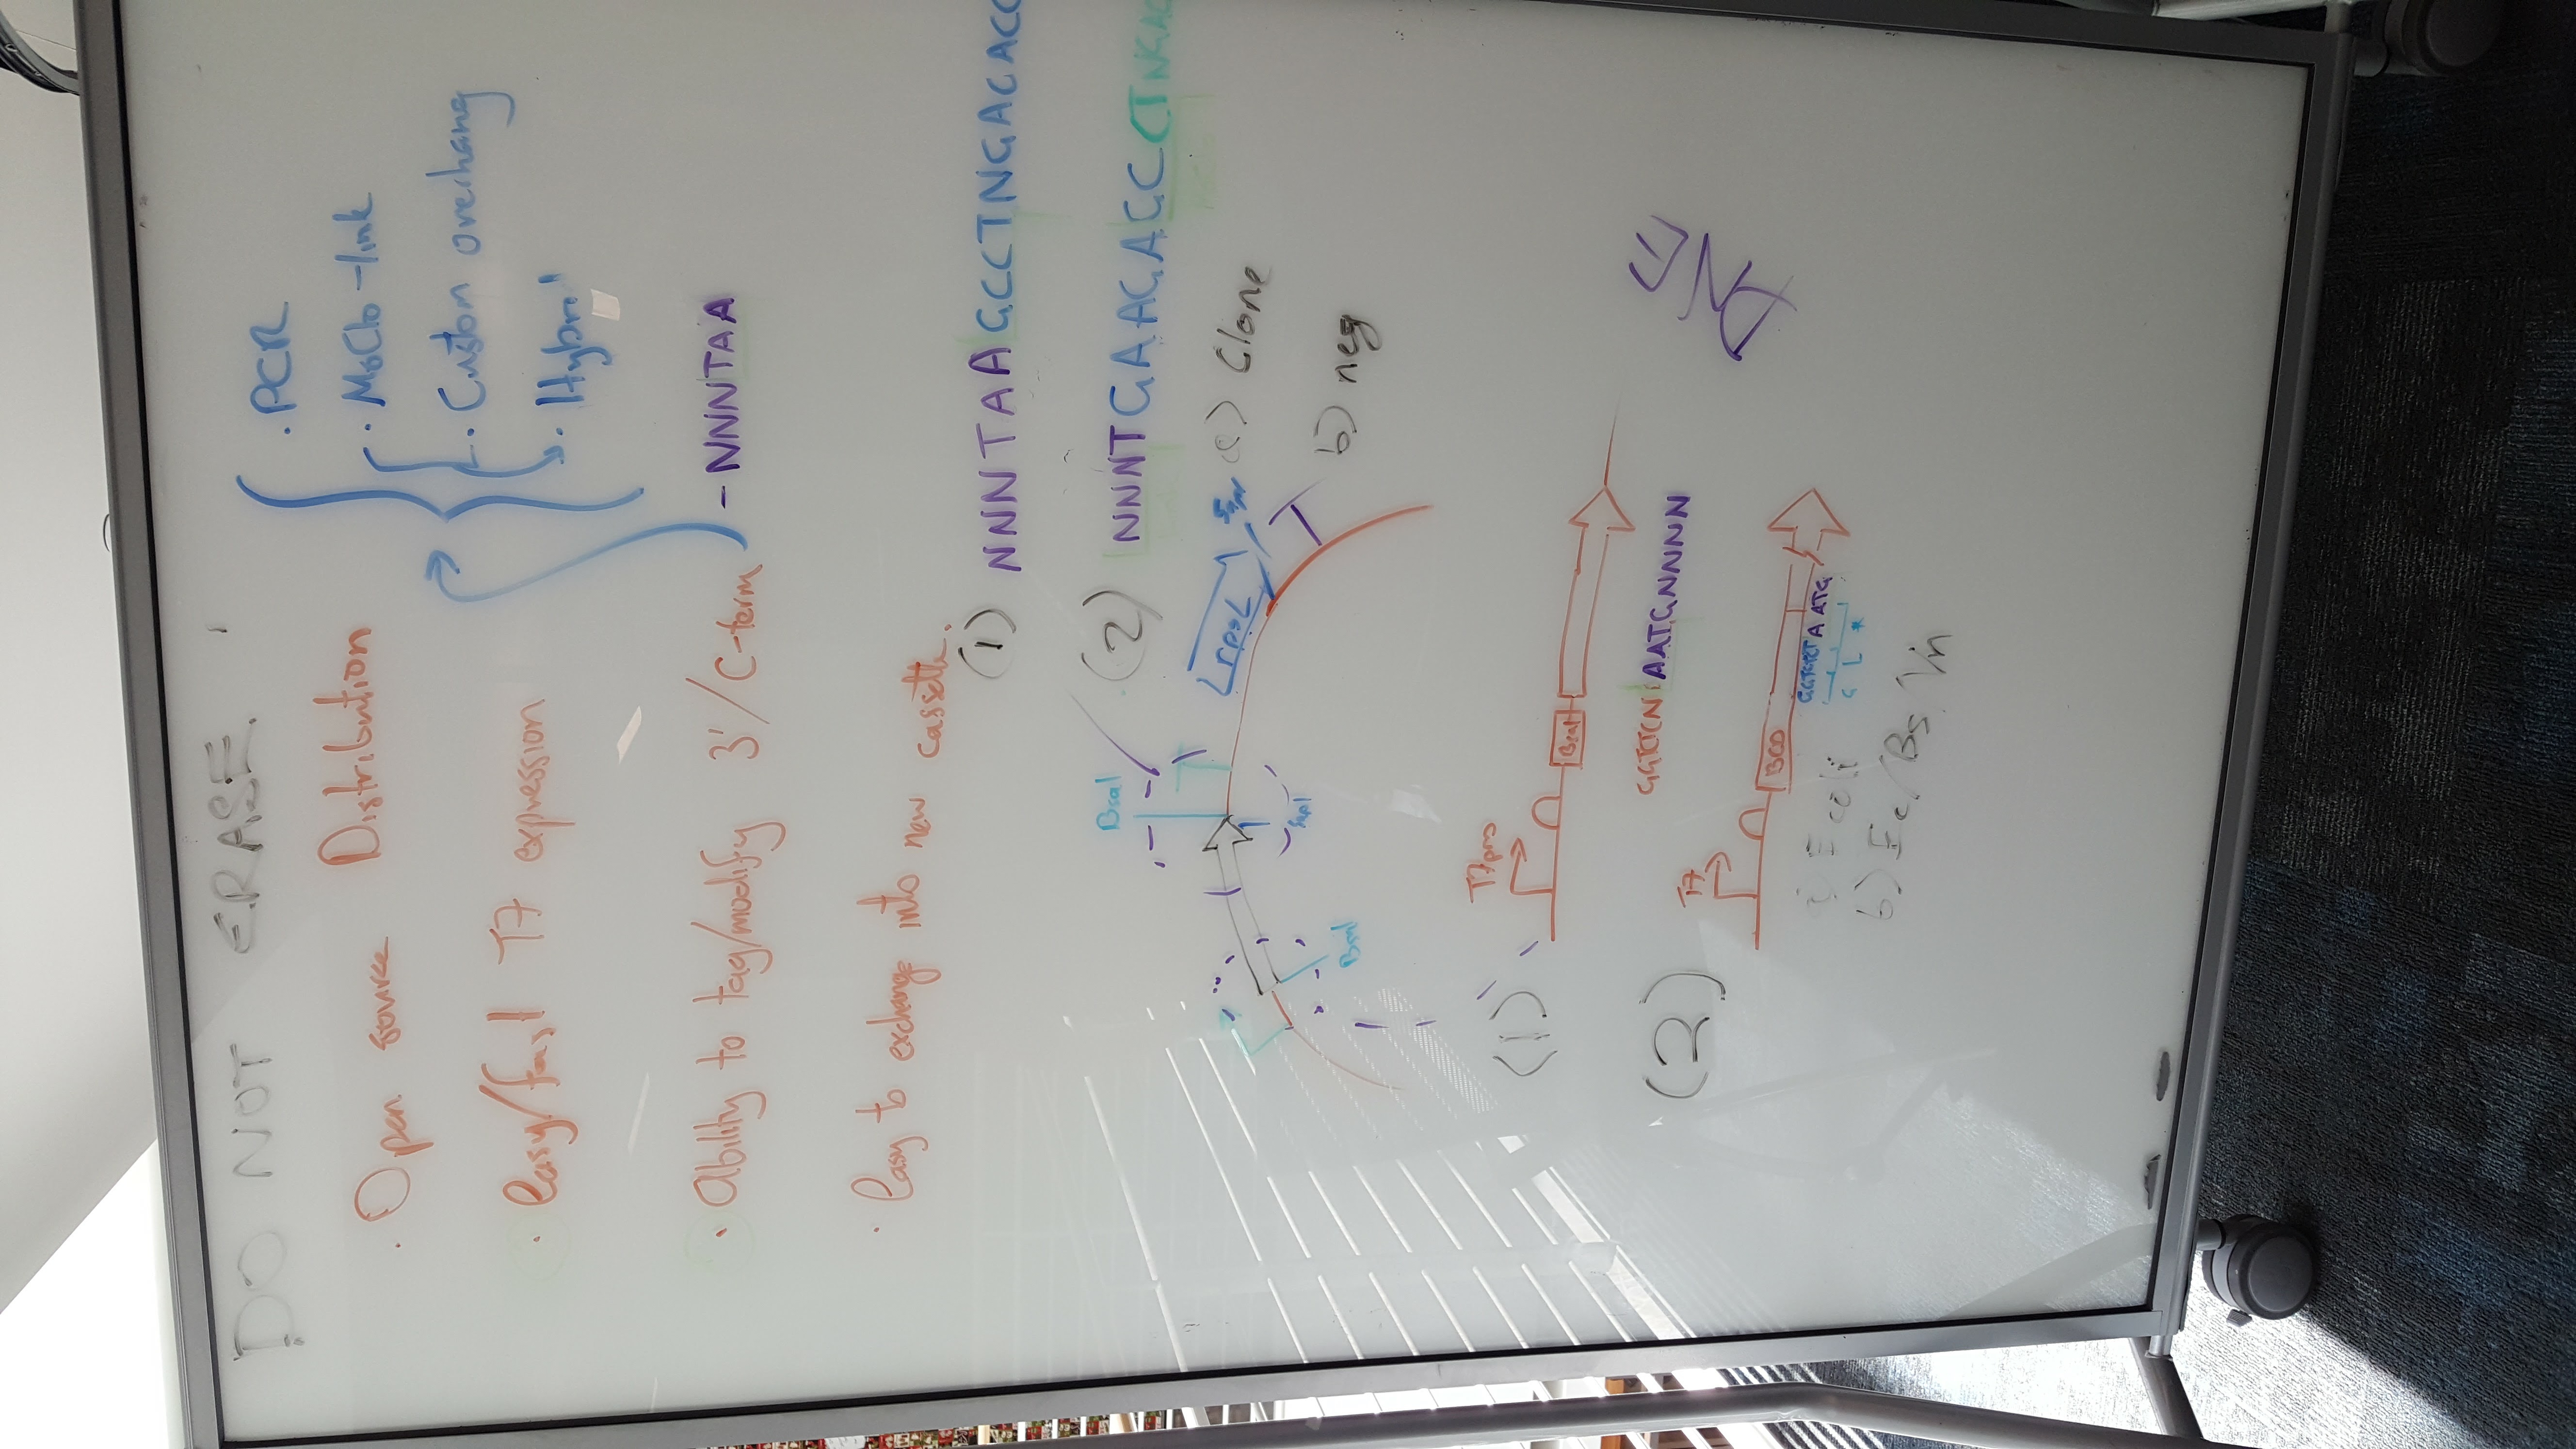 DO NOT ERASE
. Open source Distribution
. Easy/fast T7 expression
. Ability to tag/modify 3'/C-term
. Easy to exchange into new cassette.
. PCR
. MoClo-link
. Custom overhang
. Hybrid
- NNNTAA
(1) NNNTAAGCCTNGAGACC
(2) NNNTGAAGAGCCTNGAG
BsaI
SapI
BsaI
rpsL
SapI
a) Clone
b) neg
(1)
T7pro
BsaI
GGTCTCNAATGNNNN
(2)
T7
BCD
GGTCTCTAATG
G L *
E coli
b) Ec/Bs/Vn
DNE